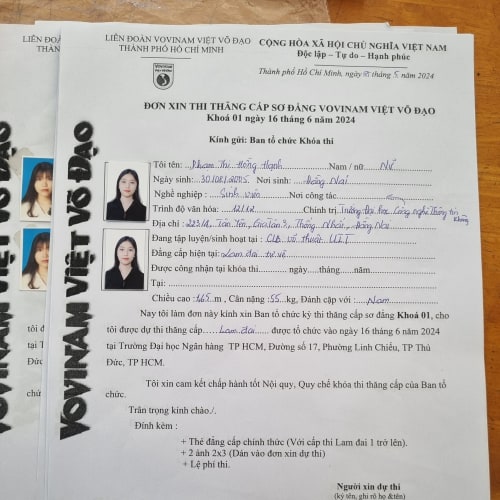 LIÊN ĐOÀN VOVINAM VIỆT VÕ ĐẠO
THÀNH PHỐ HỒ CHÍ MINH
CỘNG HÒA XÃ HỘI CHỦ NGHĨA VIỆT NAM
Độc lập – Tự do – Hạnh phúc
VOVINAM
Thành phố Hồ Chí Minh, ngày tháng 5 năm 2024
ĐƠN XIN THI THĂNG CẤP SƠ ĐẲNG VOVINAM VIỆT VÕ ĐẠO
Khoá 01 ngày 16 tháng 6 năm 2024
Kính gửi: Ban tổ chức Khóa thi
VOVINAM VIỆT VÕ ĐẠO
VOVINAM VIỆT VÕ ĐẠO
Tôi tên: Phạm Thị Hồng Hạnh Nam / nữ Nữ
Ngày sinh: 30/08/2005 Nơi sinh: Đồng Nai
Nghề nghiệp: Sinh viên Nơi công tác
Trình độ văn hóa: 12/12 Chính trị Trường Đại học Công nghệ Thông tin Không
Địa chỉ: 223/2, Tân Yên, Gia Tân 3, Thống Nhất, Đồng Nai
Đang tập luyện/sinh hoạt tại: CLB võ thuật UIT
Đẳng cấp hiện tại: Lam đai tự vệ
Được công nhận tại khóa thi ngày tháng năm
Tại:
Chiều cao: 165 m, Cân nặng: 55 kg, Đánh cặp với: Nam
Nay tôi làm đơn này kính xin Ban tổ chức kỳ thi thăng cấp sơ đẳng Khoá 01, cho
tôi được dự thi thăng cấp Lam đai được tổ chức vào ngày 16 tháng 6 năm 2024
tại Trường Đại học Ngân hàng TP HCM, Đường số 17, Phường Linh Chiểu, TP Thủ
Đức, TP HCM.
Tôi xin cam kết chấp hành tốt Nội quy, Quy chế khóa thi thăng cấp của Ban tổ
chức.
Trân trọng kính chào./.
Đính kèm:
+ Thẻ đẳng cấp chính thức (Với cấp thi Lam đai 1 trở lên).
+ 2 ảnh 2x3 (Dán vào đơn xin dự thi)
+ Lệ phí thi.
Người xin dự thi
(ký tên, ghi rõ họ &tên)